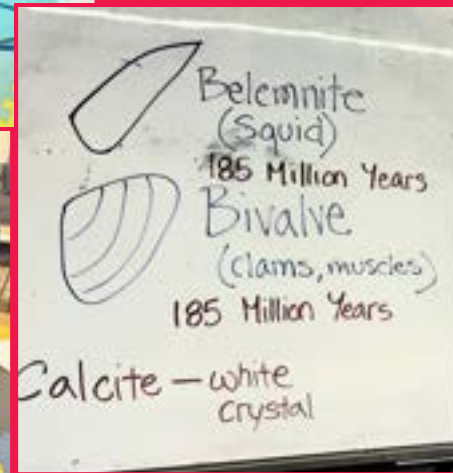 Belemnite
(Squid)
185 Million Years
Bivalve
(clams, muscles)
185 Million Years
Calcite — white
crystal